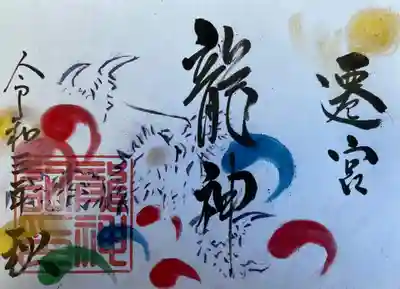 遷宮
龍神
令和三年秋